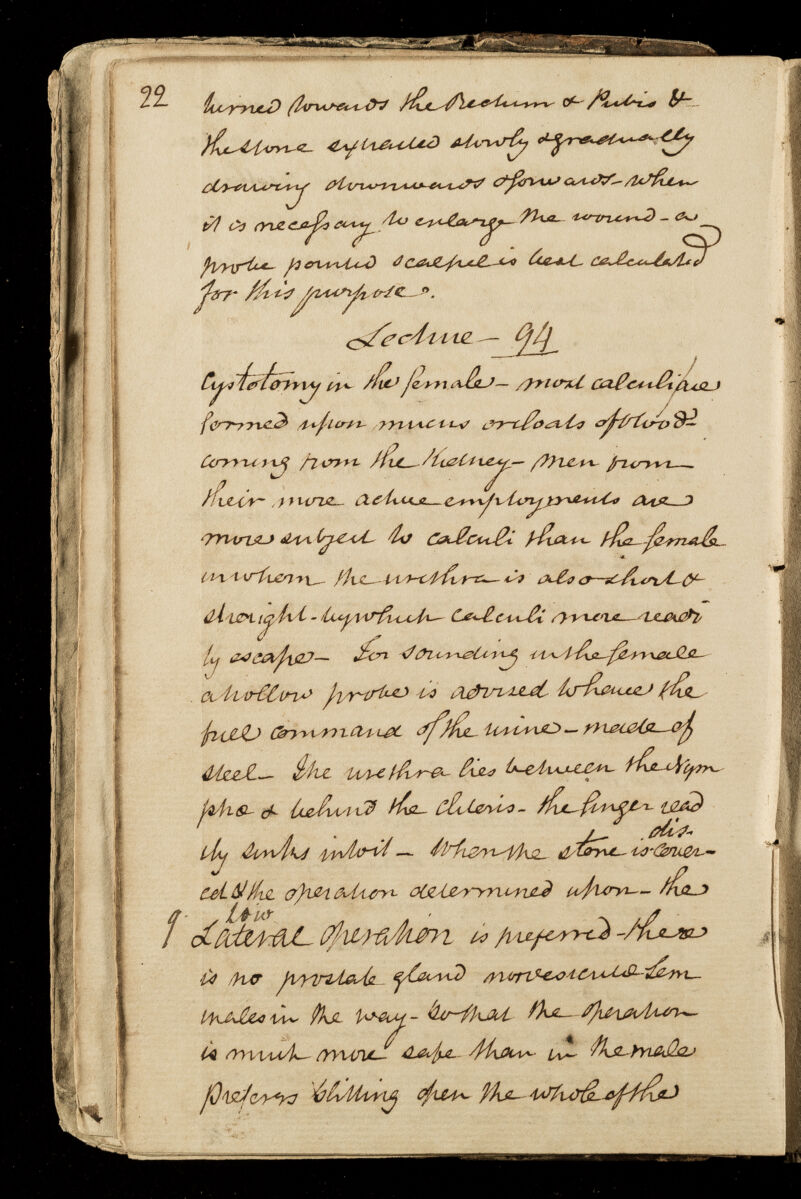 22
turned towards the Rectum & Pubis &
the stone extracted slowly & gradually
drawing downwards & forwards - when
it is necessary to enlarge the wound - a
probe pointed scalpel is best calculated
for this purpose.
Lecture - 94
Cystotomy in the female - most calculi are
formed upon mucus or cloats of blood
coming from the Kidney - Men from
their more active employments are
more subject to calculi than the female
in whom the urethra is also short &
streight - by which calculi more readi
ly escape - For sounding in the female
a hollow probe is advised to have the
full command of the urine - made of
steel - The urethra lies between the Nym
phæ & behind the cliteris - the finger read
ily sinks into it - When the stone is discover-
ed & the operation determined upon - the
low
9. Lateral operation is preferred - there
is no prostate gland nor vesiculæ Sem
inales in the way - So that the operation
is much more safe than in the male
Prefers slitting open the whole of the